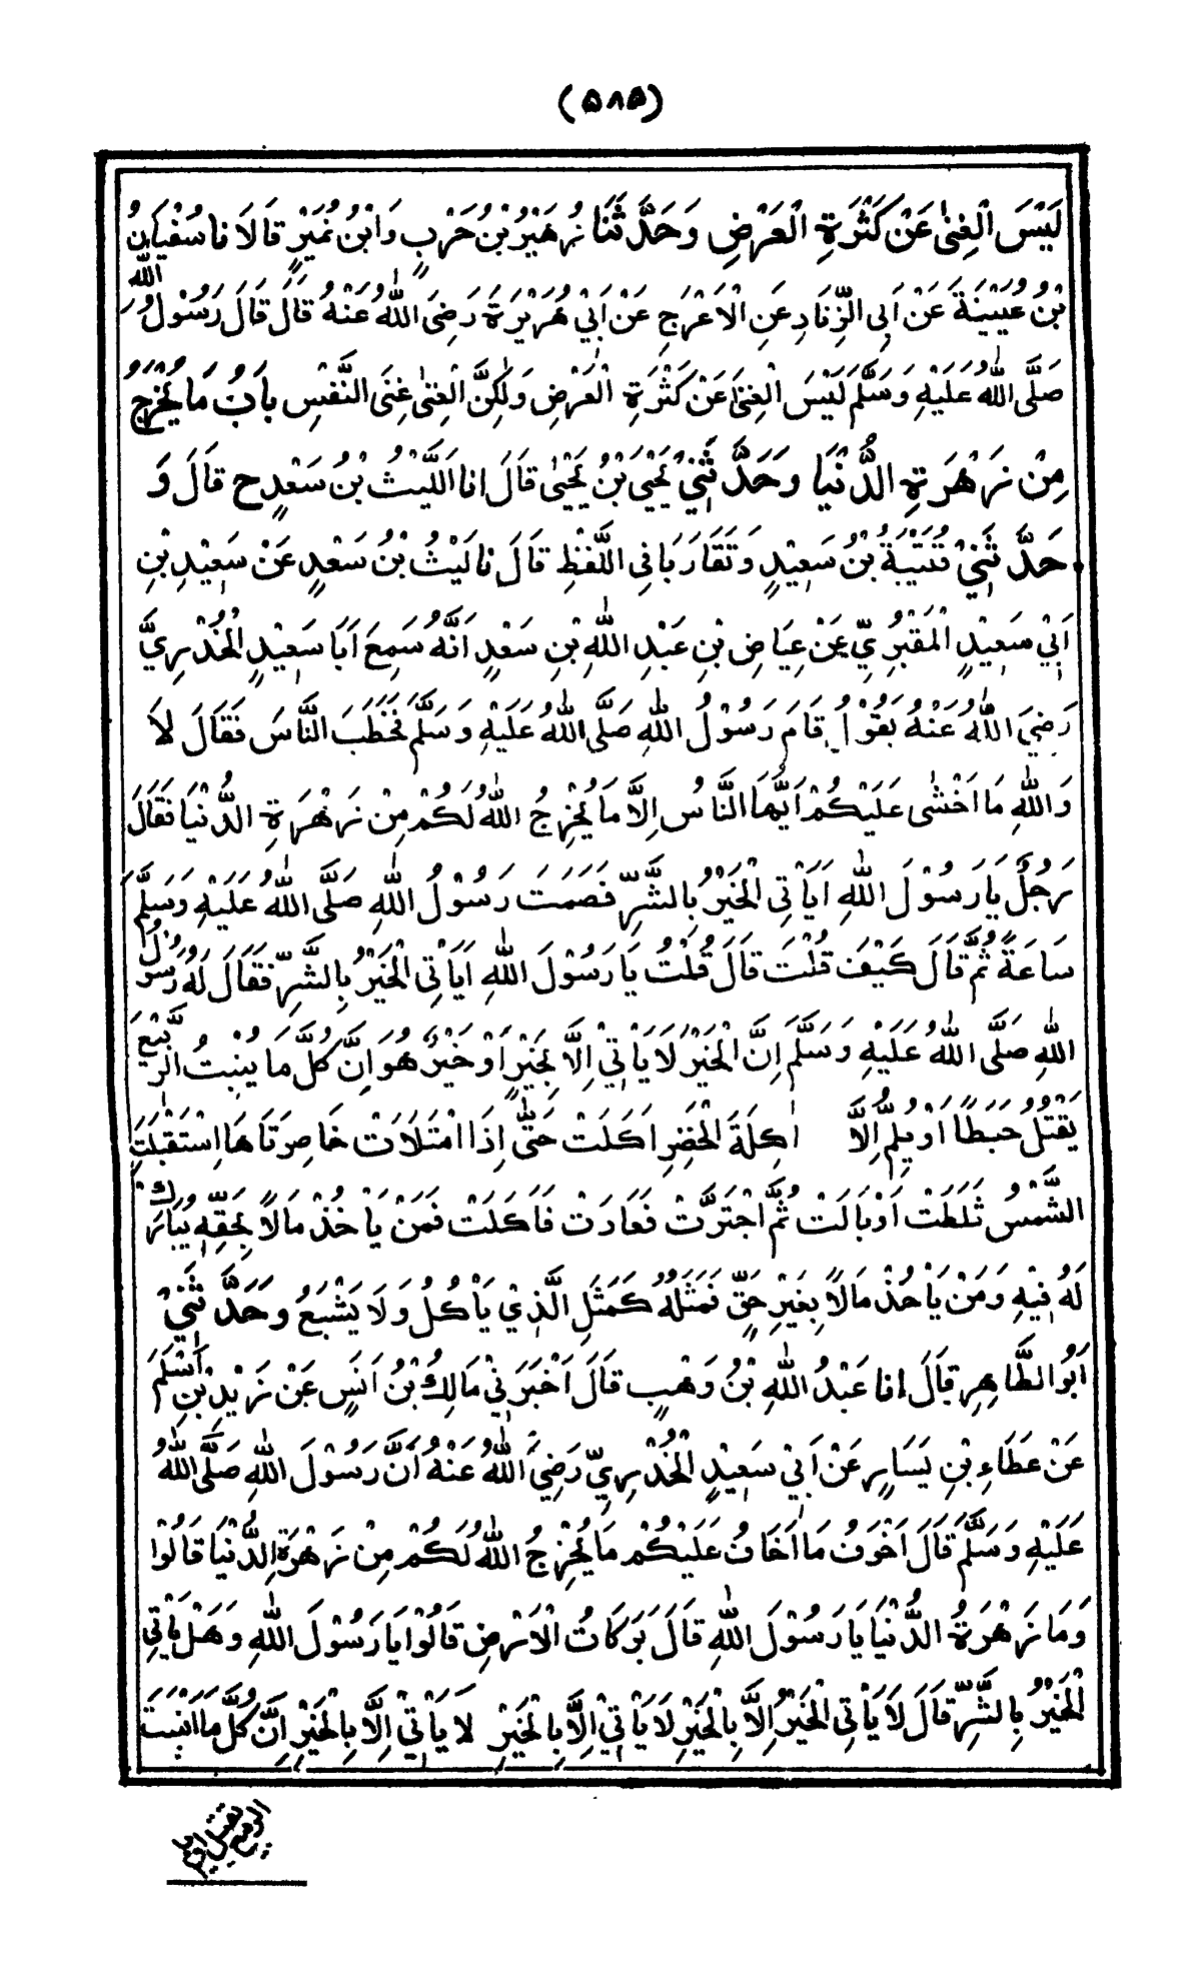 (۵۸۵)
لَيْسَ الْغِنىٰ عَنْ كَثْرَةِ الْعَرْضِ وَحَدَّثَنَا زُهَيْرُ بْنُ حَرْبٍ وَابْنُ نُمَيْرٍ قَالَا نَا سُفْيَانُ
بْنُ عُيَيْنَةَ عَنْ اَبِى الزِّنَادِ عَنِ الْاَعْرَجِ عَنْ اَبِيْ هُرَيْرَةَ رَضِىَ اللهُ عَنْهُ قَالَ قَالَ رَسُوْلُ اللهِ
صَلَّى اللهُ عَلَيْهِ وَسَلَّمَ لَيْسَ الْغِنىٰ عَنْ كَثْرَةِ الْعَرْضِ وَلٰكِنَّ الْغِنىٰ غِنَى النَّفْسِ بَابُ مَا يُخْرَجُ
مِنْ زَهْرَةِ الدُّنْيَا وَحَدَّثَنِيْ يَحْيَى بْنُ يَحْيٰى قَالَ انا اللَّيْثُ بْنُ سَعْدٍ ح قَالَ وَ
حَدَّثَنِيْ قُتَيْبَةُ بْنُ سَعِيْدٍ وَتَقَارَبَا فِى اللَّفْظِ قَالَ نا لَيْثُ بْنُ سَعْدٍ عَنْ سَعِيْدِ بْنِ
اَبِيْ سَعِيْدٍ الْمَقْبُرِيِّ عَنْ عِيَاضِ بْنِ عَبْدِ اللهِ بْنِ سَعْدٍ اَنَّهُ سَمِعَ اَبَا سَعِيْدٍ الْخُدْرِيَّ
رَضِيَ اللهُ عَنْهُ يَقُوْلُ قَامَ رَسُوْلُ اللهِ صَلَّى اللهُ عَلَيْهِ وَسَلَّمَ فَخَطَبَ النَّاسَ فَقَالَ لَا
وَاللهِ مَا اَخْشٰى عَلَيْكُمْ اَيُّهَا النَّاسُ اِلَّا مَا يُخْرِجُ اللهُ لَكُمْ مِنْ زَهْرَةِ الدُّنْيَا فَقَالَ
رَجُلٌ يَا رَسُوْلَ اللهِ اَيَاْتِى الْخَيْرُ بِالشَّرِّ فَصَمَتَ رَسُوْلُ اللهِ صَلَّى اللهُ عَلَيْهِ وَسَلَّمَ
سَاعَةً ثُمَّ قَالَ كَيْفَ قُلْتَ قَالَ قُلْتُ يَا رَسُوْلَ اللهِ اَيَاْتِى الْخَيْرُ بِالشَّرِّ فَقَالَ لَهُ رَسُوْلُ
اللهِ صَلَّى اللهُ عَلَيْهِ وَسَلَّمَ اِنَّ الْخَيْرَ لَا يَاْتِيْ اِلَّا بِخَيْرٍ اَوَ خَيْرٌ هُوَ اِنَّ كُلَّ مَا يُنْبِتُ الرَّبِيْعُ
يَقْتُلُ حَبَطًا اَوْ يُلِمُّ اِلَّا اٰكِلَةَ الْخَضِرِ اَكَلَتْ حَتّٰى اِذَا امْتَلَاَتْ خَاصِرَتَاهَا اسْتَقْبَلَتِ
الشَّمْسَ ثَلَطَتْ اَوْ بَالَتْ ثُمَّ اجْتَرَّتْ فَعَادَتْ فَاَكَلَتْ فَمَنْ يَاْخُذْ مَالًا بِحَقِّهٖ يُبَارَكْ
لَهُ فِيْهِ وَمَنْ يَاْخُذْ مَالًا بِغَيْرِ حَقٍّ فَمَثَلُهُ كَمَثَلِ الَّذِيْ يَاْكُلُ وَلَا يَشْبَعُ وحَدَّثَنِيْ
اَبُو الطَّاهِرِ قَالَ انا عَبْدُ اللهِ بْنُ وَهْبٍ قَالَ اَخْبَرَنِيْ مَالِكُ بْنُ اَنَسٍ عَنْ زَيْدِ بْنِ اَسْلَمَ
عَنْ عَطَاءِ بْنِ يَسَارٍ عَنْ اَبِيْ سَعِيْدٍ الْخُدْرِيِّ رَضِيَ اللهُ عَنْهُ اَنَّ رَسُوْلَ اللهِ صَلَّى اللهُ
عَلَيْهِ وَسَلَّمَ قَالَ اَخْوَفُ مَا اَخَافُ عَلَيْكُمْ مَا يُخْرِجُ اللهُ لَكُمْ مِنْ زَهْرَةِ الدُّنْيَا قَالُوْا
وَمَا زَهْرَةُ الدُّنْيَا يَا رَسُوْلَ اللهِ قَالَ بَرَكَاتُ الْاَرْضِ قَالُوْا يَا رَسُوْلَ اللهِ وَهَلْ يَاْتِى
الْخَيْرُ بِالشَّرِّ قَالَ لَا يَاْتِى الْخَيْرُ اِلَّا بِالْخَيْرِ لَا يَاْتِيْ اِلَّا بِالْخَيْرِ لَا يَاْتِيْ اِلَّا بِالْخَيْرِ اِنَّ كُلَّ مَا اَنْبَتَ
الربيع يقتل او يلم